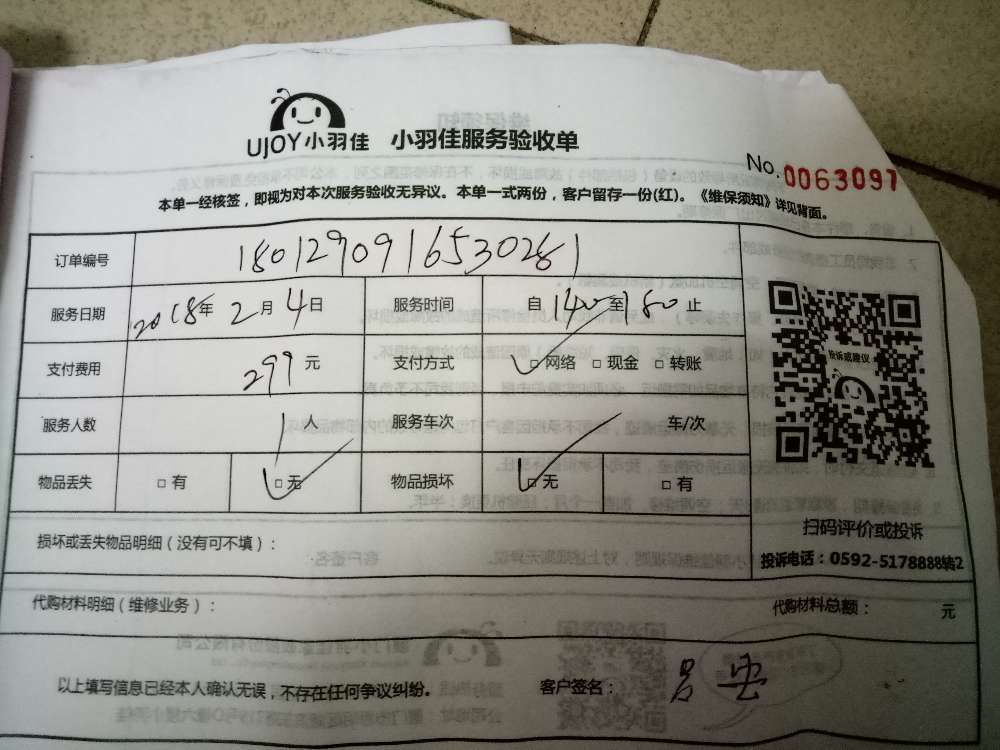 UJOY小羽佳 小羽佳服务验收单
No. 0063097
本单一经核签，即视为对本次服务验收无异议。本单一式两份，客户留存一份(红)。《维保须知》详见背面。
订单编号 1801290916530281
服务日期 2018年 2月 4日 服务时间 自 1400 至 1800 止
支付费用 299 元 支付方式 □网络 □现金 □转账
服务人数 1人 服务车次 车/次
物品丢失 □有 □无 物品损坏 □无 □有
投诉或建议
扫码评价或投诉
投诉电话：0592-5178888转2
损坏或丢失物品明细（没有可不填）：
代购材料明细（维修业务）： 代购材料总额： 元
以上填写信息已经本人确认无误，不存在任何争议纠纷。 客户签名：